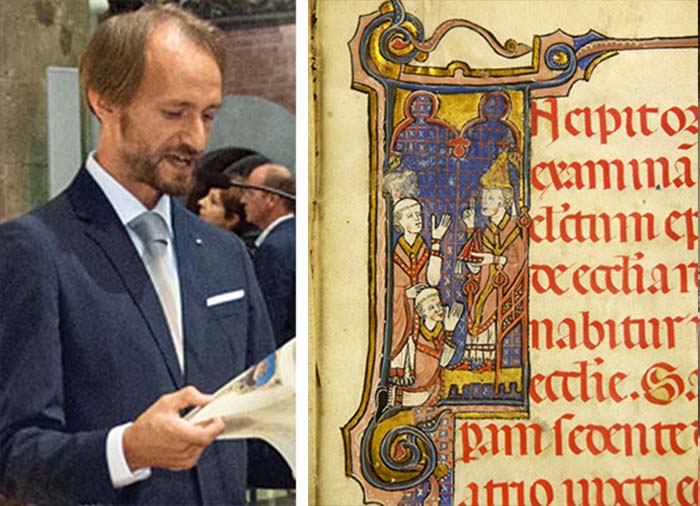 Incipit or
examinā
electum ep
de eccliar
nabitur
ecclie. Sa
param sedente
atrio iuxta e